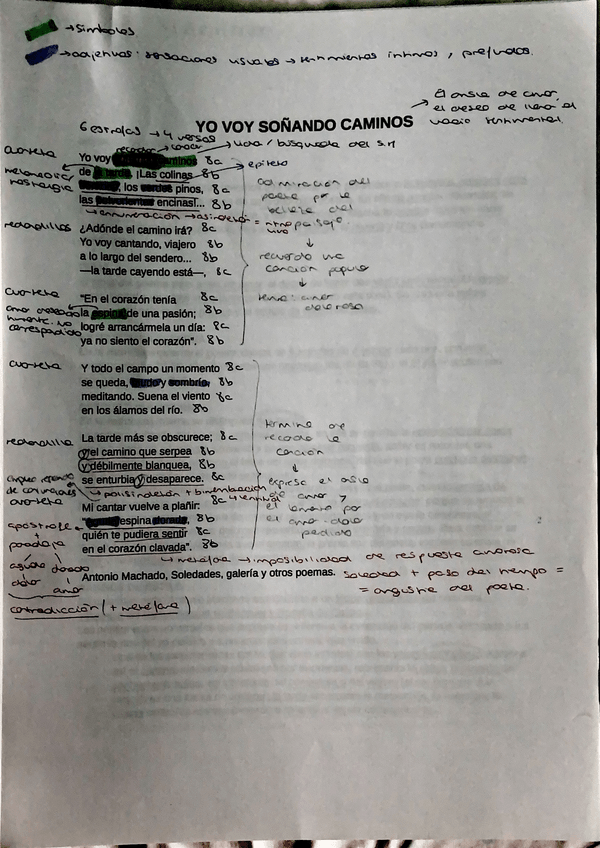 → símbolos
→ adjetivos: sensaciones usuales → sentimientos íntimos, profundos.
→ El ansia de amor,
el deseo de llenar el
vacío sentimental.
6 estrofas → 4 versos
YO VOY SOÑANDO CAMINOS
recordar → conocer → vida / búsqueda del
cuarteta
Yo voy soñando caminos 8a
de la tarde. ¡Las colinas 8b → epíteto
melancolía / nostalgia
doradas, los verdes pinos, 8a
las polvorientas encinas!... 8b
→ enumeración → asíndeton =
admiración del
poeta por la
belleza del
paisaje
↓
recuerdo una
canción popular
↓
tema: amor
doloroso
redondillas
¿Adónde el camino irá? 8c
Yo voy cantando, viajero 8b
a lo largo del sendero... 8b
—la tarde cayendo está—, 8c
cuarteta
"En el corazón tenía 8c
amor deseado
la espina de una pasión; 8b
correspondido
logré arrancármela un día: 8c
ya no siento el corazón". 8b
cuarteta
Y todo el campo un momento 8c
se queda, mudo y sombrío, 8b
meditando. Suena el viento 8c
en los álamos del río. 8b
termina de
recordar la
canción
↓
expresa el ansia
de amor y
el
el amor-dolor
perdido
redondilla
La tarde más se obscurece; 8c
y el camino que serpea 8b
y débilmente blanquea, 8b
se enturbia y desaparece. 8c
de conjunciones
→ polisíndeton + bimembración
cuarteta
Mi cantar vuelve a plañir: 8c
"Aguda espina dorada, 8b
quién te pudiera sentir 8c
en el corazón clavada". 8b
apóstrofe
+
paradoja
aguda dorada
↓ ↓
dolor amor
contradicción (+ metáfora)
→ metáfora → imposibilidad de respuesta amorosa
Antonio Machado, Soledades, galería y otros poemas.
soledad + paso del tiempo =
= angustia del poeta.
2